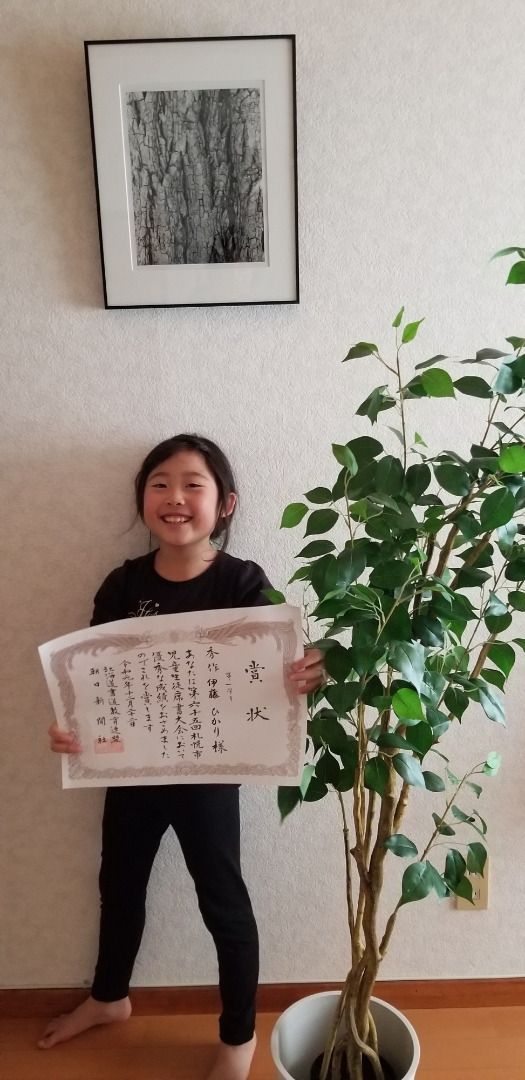 賞状
秀作 伊藤 ひかり 様
あなたは第六十五回札幌市
児童生徒席書大会において
優秀な成績をおさめました
のでこれを賞します
北海道書道教育連盟
朝日新聞社